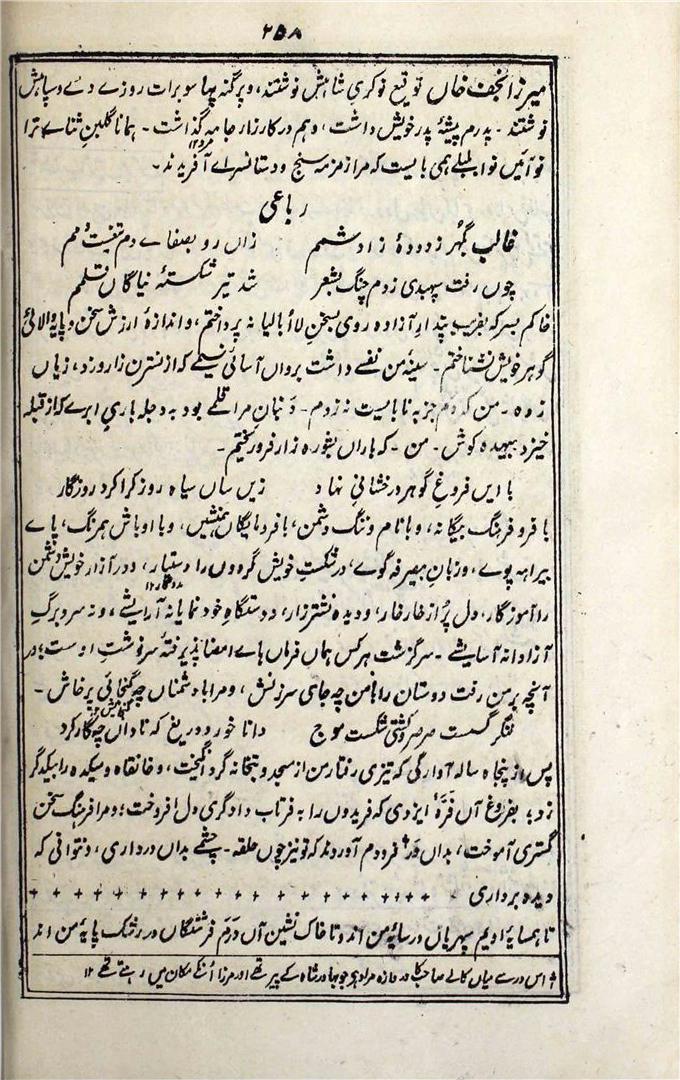 ۲۵۸
میرزا نجف خاں توقیع نوکریِ شاہش نوشتند، و پرگنہ پہاسو برات روزے دے و سپاہش
نوشتند۔ پدرم پیشۂ پدر خویش داشت، و ہم در کارزار جامہ گذاشت۔ ہمانا گلبن ثناے ترا
نو آئیں نوا بلبلے ہمی بایست کہ مرا زمزمہ سنج و دستانسراے آفریدند۔
رباعی
غالب بگہُر ز دودۂ زاد شمم زاں رو بصفاے دم تیغست دمم
چوں رفت سپہبدی زدم چنگ بشعر شد تیر شکستۂ نیاگاں قلمم
خاکم بسر کہ بفریب پندارِ آزادہ روی بسخن لا اُبالیا نہ پرداختم، و اندازۂ ارزش سخن و پایۂ والائیِ
گوہر خویش نشناختم۔ سینۂ من نفسے داشت برواں آسائی نسیمے کہ از نسترن زار وزد، زیاں
زدہ۔ من کہ دم جز بہ نابایست نہ زدم۔ بنانِ مرا قلمے بود بہ دجلہ باریِ ابرے کہ از قبلہ
خیزد بیہدہ کوش۔ من۔ کہ باراں بشورہ زار فرو ریختم۔
با ایں فروغِ گوہر درخشانیِ نہاد زیں ساں سیاہ روز کرا کرد روزگار
با فر و فرہنگ بیگانہ، و با نام و ننگ دشمن، با فرومایگاں ہمنشیں، و با اوباش ہمرنگ، پاے
بیراہہ پوے، و زبانِ بیصرفہ گوے، در شکستِ خویش گردوں را دستیار، و در آزارِ خویش دشمن
را آموزگار، دل پُر از خار خار، و دیدہ نشتر زار، نہ دستگاہِ خود نمایانہ آرایشے، و نہ سر و برگِ
آزادانہ آسایشے۔ سرگزشت ہر کس ہماں فرماں ہاے امضا پذیرفتۂ سرنوشتِ اوست؛ در
آنچہ بر من رفت دوستان را با من چہ جای سرزنش، و مرا با دشمناں چہ گنجائی پرخاش۔
لنگر گسست صرصر و کشتی شکست موج دانا خورد دریغ کہ ناداں چہ کار کرد
پس از پنجاہ سالہ آوارگی کہ تیزی رفتار من از مسجد و بتخانہ گرد انگیخت، و خانقاہ و میکدہ را بیکدگر
زد؛ بفروغ آں فَرّۂ ایزدی کہ فریدوں را بہ فرتاب دادگری دل افروخت؛ و مرا فرہنگ سخن
گستری آموخت، بداں دَر† فرودم آوردند کہ تو نیز چوں حلقہ۔ چشمے بداں در داری، و نتوانی کہ
دیدہ برداری + + + + + + + + + + + + + + + + + + + +
تا ہمسایۂ اویم سپہریاں در سایۂ من اند و تا خاک نشین آں درم فرشتگاں در رشک پایۂ من اند
† اس در سے میاں کالے صاحب کا دروازہ مراد ہی جو بہادر شاہ کے پیر تھے اور مرزا اُنکے مکان میں رہتے تھے ۱۲